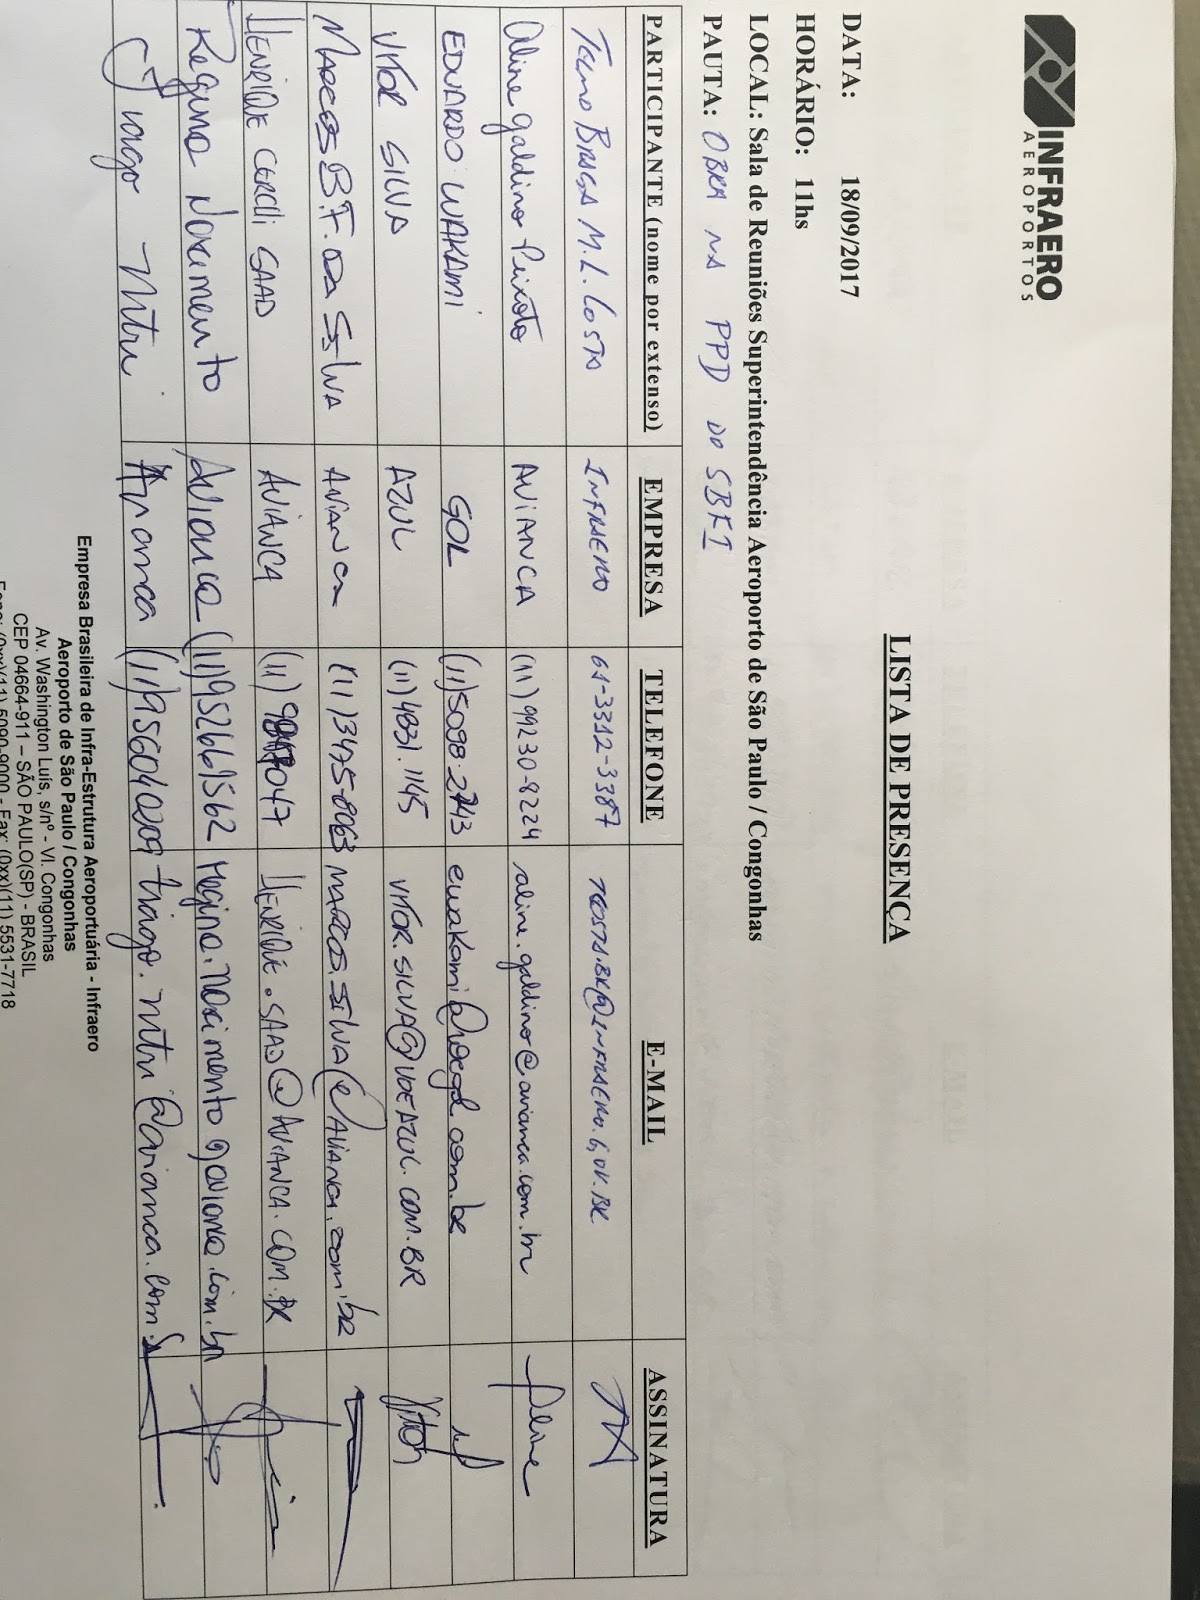 INFRAERO
AEROPORTOS
LISTA DE PRESENÇA
DATA: 18/09/2017
HORÁRIO: 11hs
LOCAL: Sala de Reuniões Superintendência Aeroporto de São Paulo / Congonhas
PAUTA: OBRA NA PPD DO SBKI
PARTICIPANTE (nome por extenso) EMPRESA TELEFONE E-MAIL ASSINATURA
BRAGA M. L. COSTA INFRAERO 61-3312-3387
Aline Galdino Peixoto AVIANCA (11) 99230-8224 aline.galdino@avianca.com.br Aline
EDUARDO WAKAMI GOL (11) 5098-2743
VITOR SILVA AZUL (11) 4831.1145 VITOR.SILVA@VOEAZUL.COM.BR Vitor
MARCOS B. F. DA SILVA AVIANCA (11) 3475-8063 MARCOS.SILVA@AVIANCA.com.br
HENRIQUE CEROLI SAAD AVIANCA (11) HENRIQUE.SAAD@AVIANCA.COM.BR
Regina Nascimento Avianca (11) 952661562
Tiago Avianca (11)
Empresa Brasileira de Infra-Estrutura Aeroportuária - Infraero
Aeroporto de São Paulo / Congonhas
Av. Washington Luís, s/nº - Vl. Congonhas
CEP 04664-911 – SÃO PAULO(SP) - BRASIL
Fone: (0xx)(11) 5090-9000 - Fax: (0xx)(11) 5531-7718